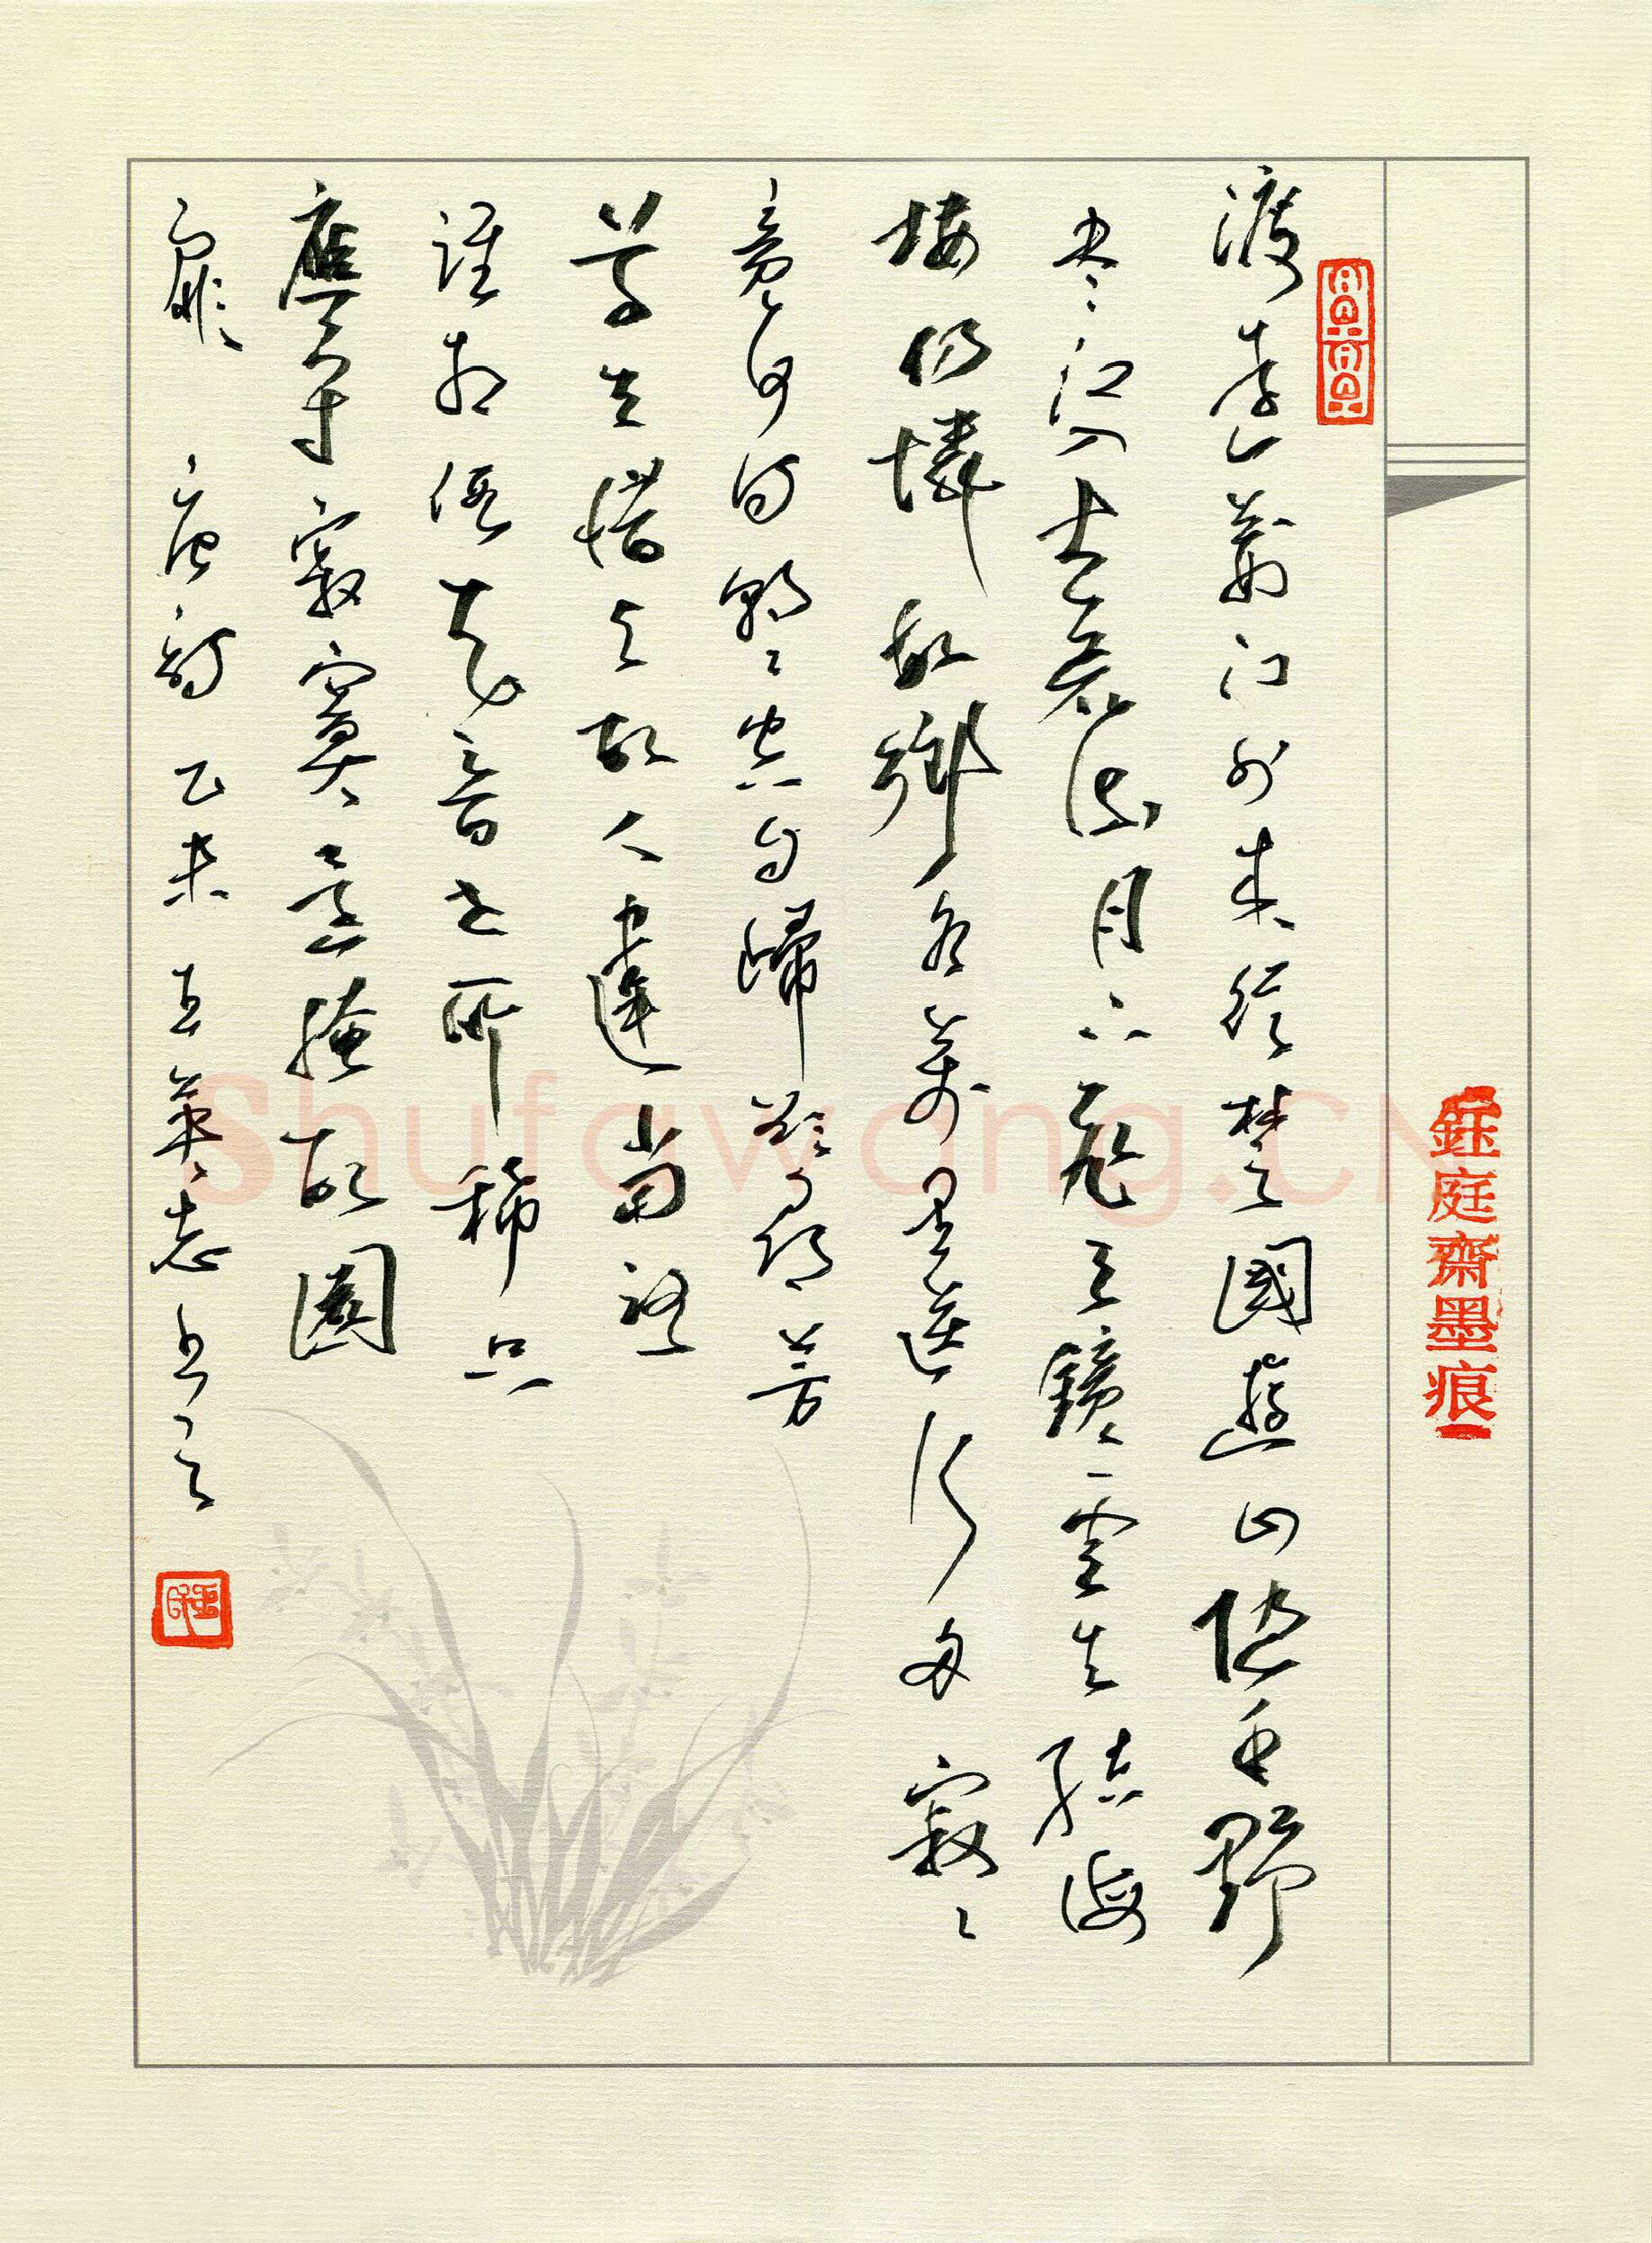 鈺庭齋墨痕
渡遠荊門外來從楚國遊山隨平野
尽江入大荒流月下飛天鏡雲生结海
楼仍憐故鄉水萬里送行舟寂〻
竟何待朝〻空自歸欲尋芳
草去惜与故人違當路
誰相假知音世所稀只
應守寂寞還掩故園
扉 唐詩 乙未 王英志书之
Shufawang.CN